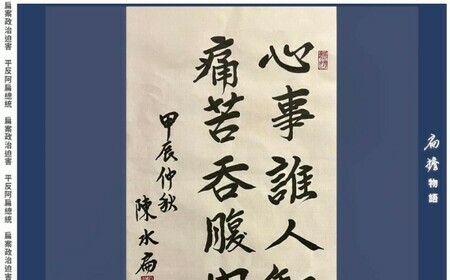 扁擔物語
心事誰人
痛苦吞腹
甲辰仲秋
陳水扁
扁案政治迫害 平反阿扁總統 扁案政治迫害 平反阿扁總統 扁案政治迫害